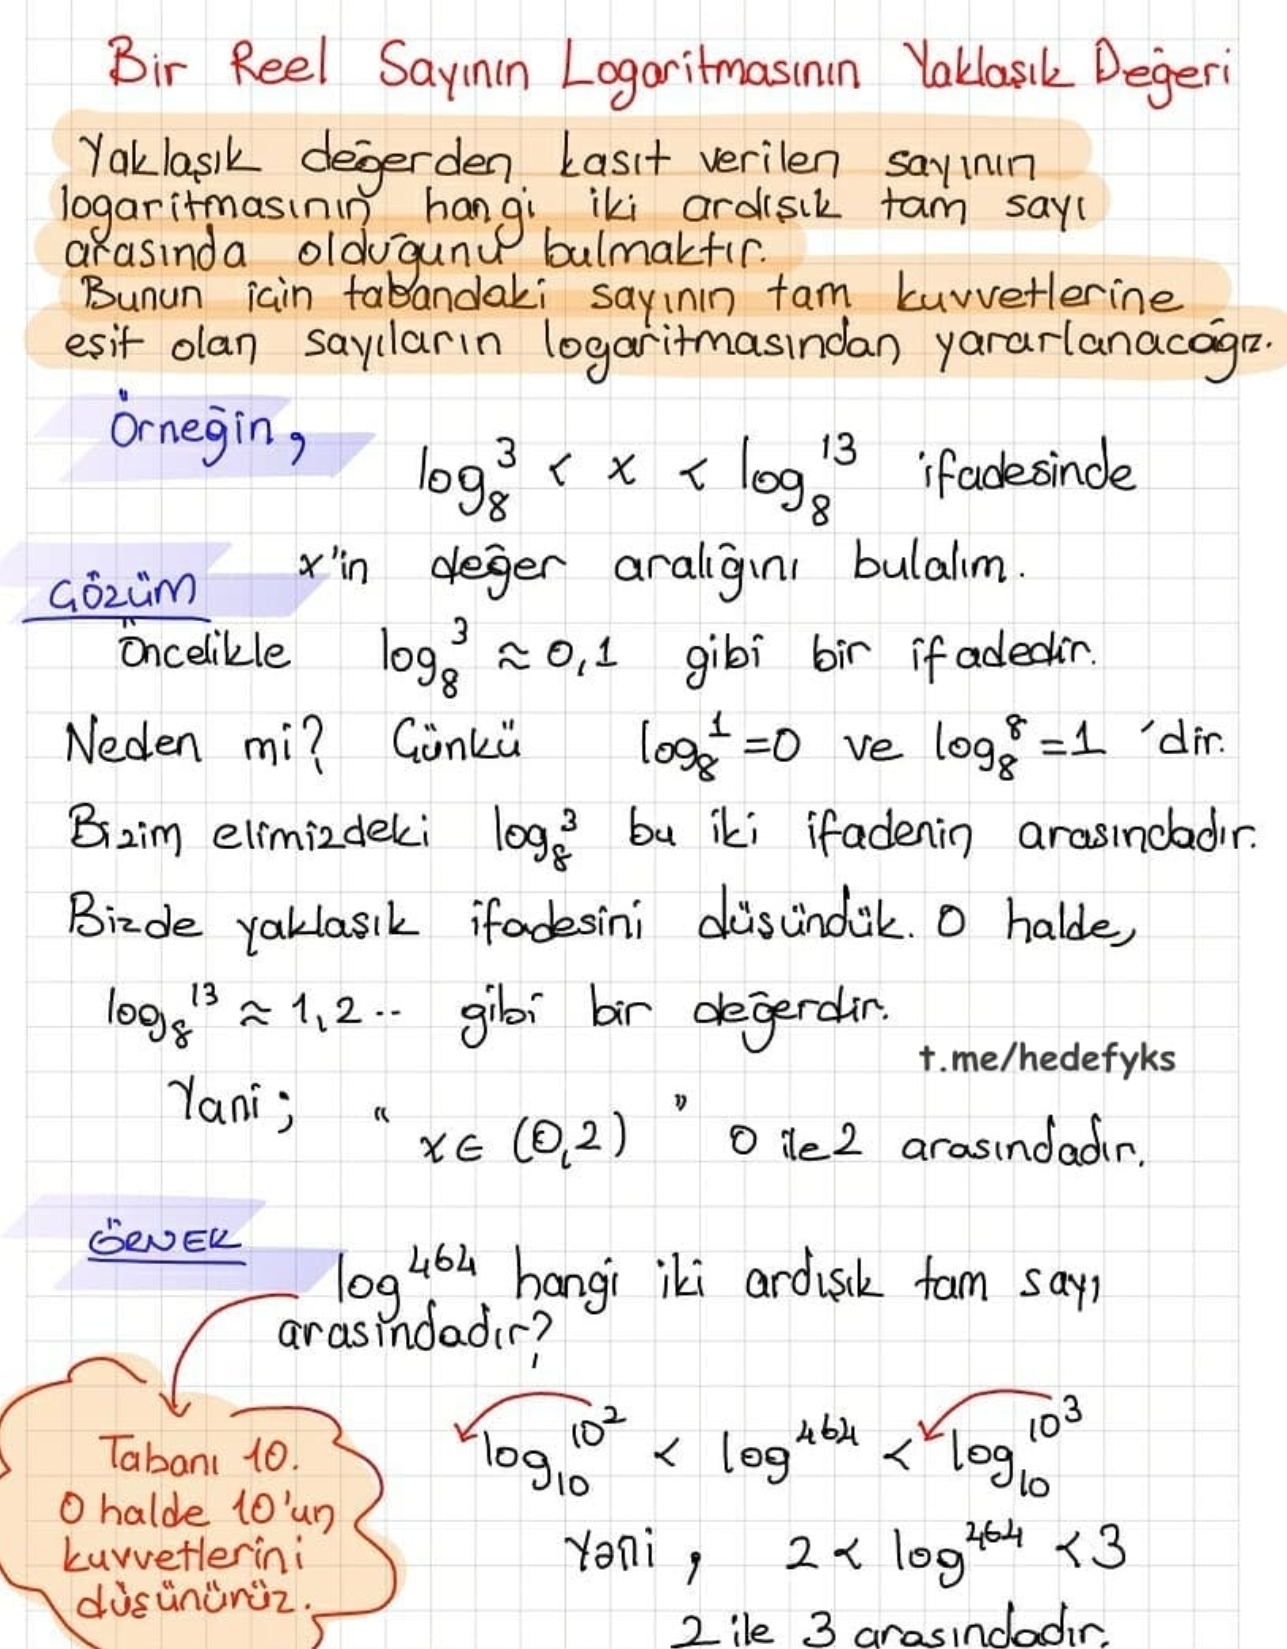 Bir Reel Sayının Logaritmasının Yaklaşık Değeri
Yaklaşık değerden kasıt verilen sayının
logaritmasının hangi iki ardışık tam sayı
arasında olduğunu bulmaktır.
Bunun için tabandaki sayının tam kuvvetlerine
eşit olan sayıların logaritmasından yararlanacağız.
Örneğin, log₈³ < x < log₈¹³ ifadesinde
x'in değer aralığını bulalım.
ÇÖZÜM
Öncelikle log₈³ ≈ 0,1 gibi bir ifadedir.
Neden mi? Çünkü log₈¹ = 0 ve log₈⁸ = 1 'dir.
Bizim elimizdeki log₈³ bu iki ifadenin arasındadır.
Bizde yaklaşık ifadesini düşündük. O halde,
log₈¹³ ≈ 1,2.. gibi bir değerdir.
t.me/hedefyks
Yani; " x ∈ (0,2) " 0 ile 2 arasındadır.
ÖRNEK
log⁴⁶⁴ hangi iki ardışık tam sayı
arasındadır?
Tabanı 10.
O halde 10'un
kuvvetlerini
düşünürüz.
log₁₀ 10² < log⁴⁶⁴ < log₁₀ 10³
Yani, 2 < log⁴⁶⁴ < 3
2 ile 3 arasındadır.